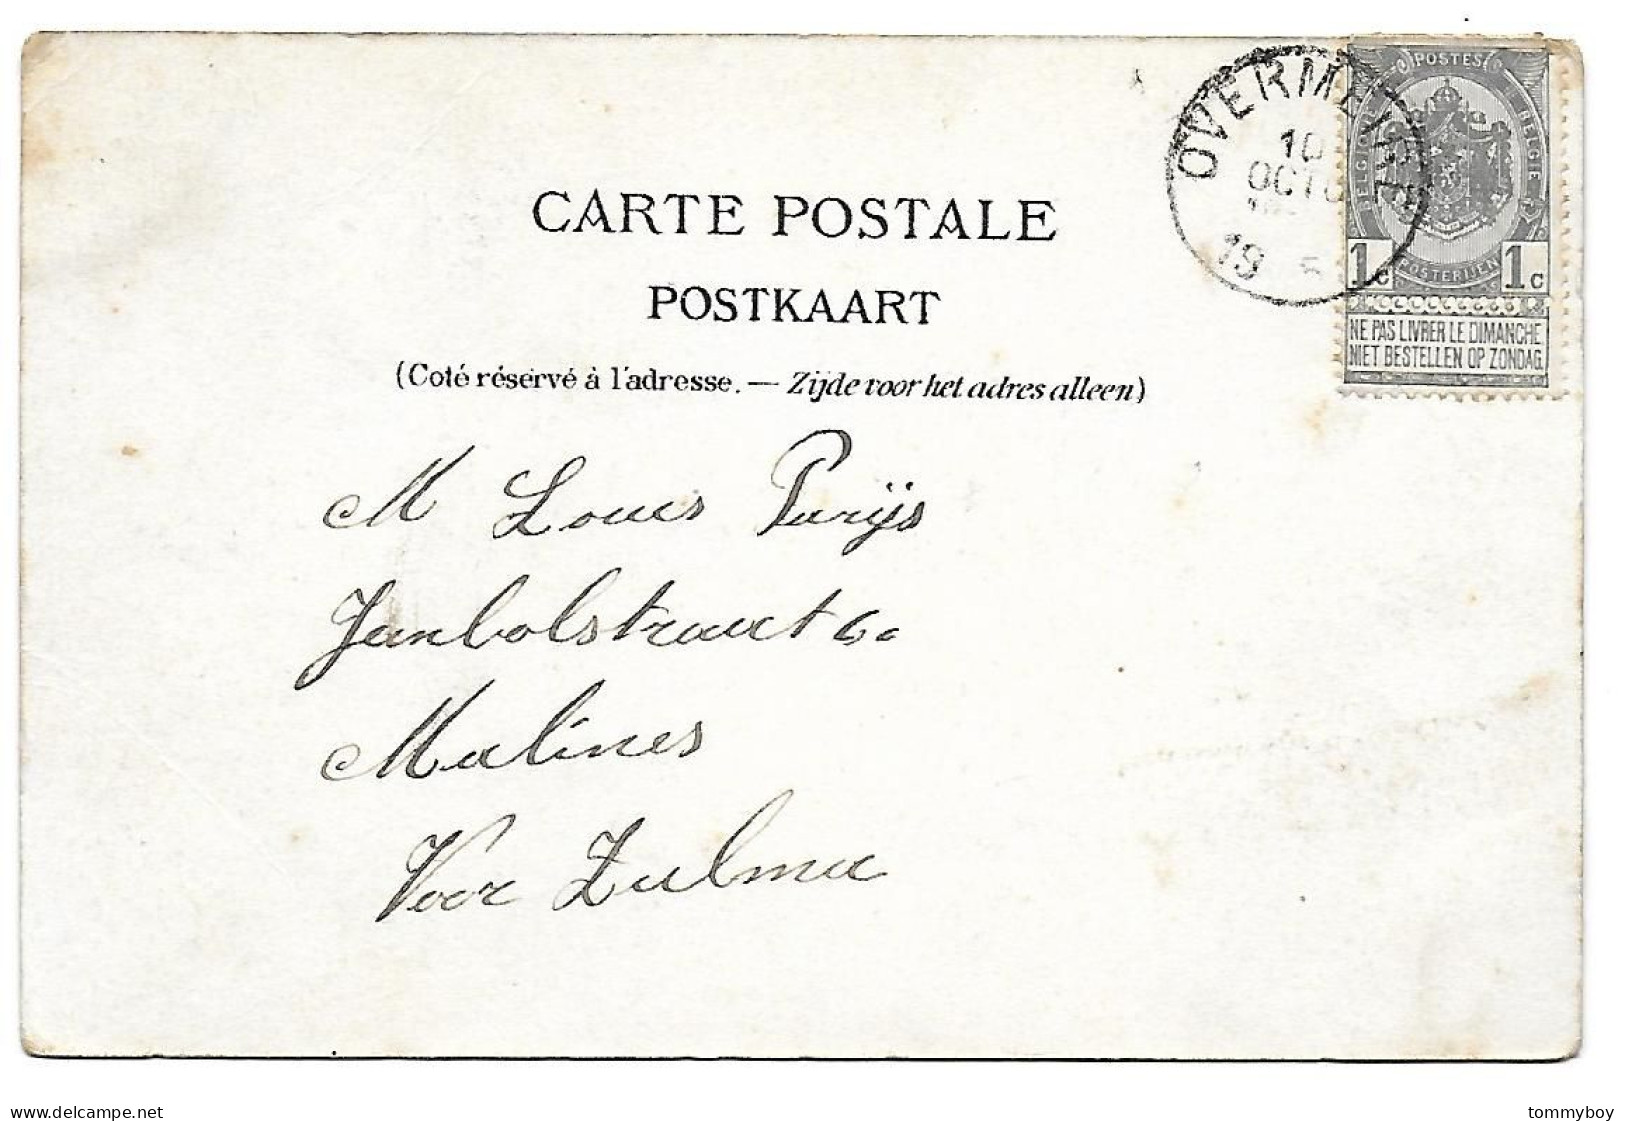 CARTE POSTALE
POSTKAART
(Coté réservé à l'adresse. — Zijde voor het adres alleen)
OVERMEIRE
10
OCTO
19 5
POSTES
BELGIQUE
BELGIE
POSTERIJEN
1c 1c
NE PAS LIVRER LE DIMANCHE
NIET BESTELLEN OP ZONDAG.
M Louis Parijs
Janbolstraat
Malines
Voor Zulma
www.delcampe.net
tommyboy